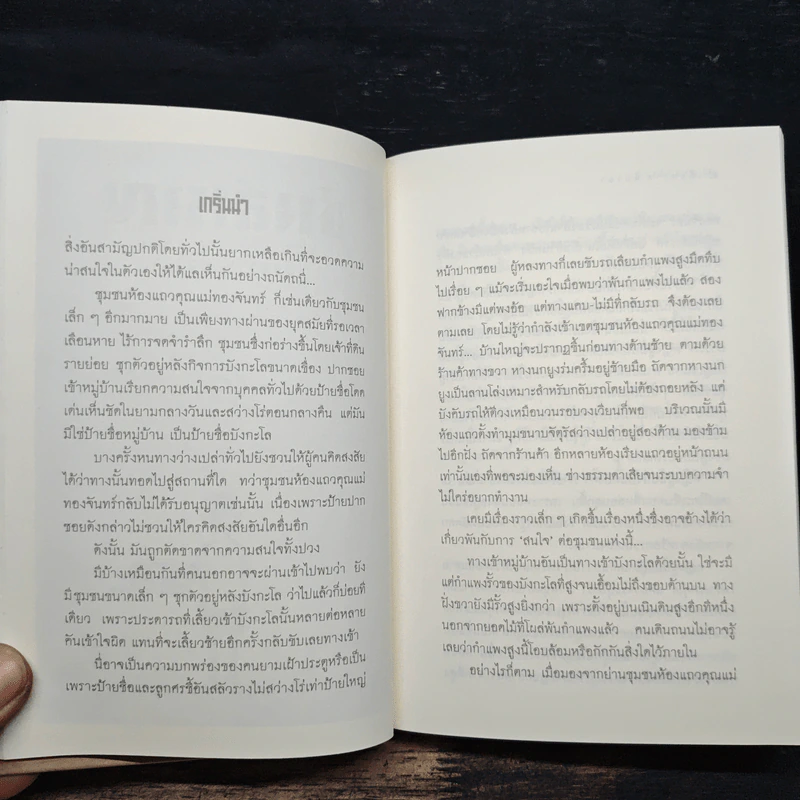 เกริ่นนำ
สิ่งอันสามัญปกติโดยทั่วไปนั้นยากเหลือเกินที่จะอวดความ
น่าสนใจในตัวเองให้ได้แลเห็นกันอย่างถนัดถนี่...
ชุมชนห้องแถวคุณแม่ทองจันทร์ ก็เช่นเดียวกับชุมชน
เล็ก ๆ อีกมากมาย เป็นเพียงทางผ่านของยุคสมัยที่รอเวลา
เลือนหาย ไร้การจดจำรำลึก ชุมชนซึ่งก่อร่างขึ้นโดยเจ้าที่ดิน
รายย่อย ซุกตัวอยู่หลังกิจการบังกะโลขนาดเขื่อง ปากซอย
เข้าหมู่บ้านเรียกความสนใจจากบุคคลทั่วไปด้วยป้ายชื่อโดด
เด่นเห็นชัดในยามกลางวันและสว่างโร่ตอนกลางคืน แต่มัน
มิใช่ป้ายชื่อหมู่บ้าน เป็นป้ายชื่อบังกะโล
บางครั้งหนทางว่างเปล่าทั่วไปยังชวนให้ผู้คนคิดสงสัย
ได้ว่าทางนั้นทอดไปสู่สถานที่ใด ทว่าชุมชนห้องแถวคุณแม่
ทองจันทร์กลับไม่ได้รับอนุญาตเช่นนั้น เนื่องเพราะป้ายปาก
ซอยดังกล่าวไม่ชวนให้ใครคิดสงสัยอันใดอื่นอีก
ดังนั้น มันถูกตัดขาดจากความสนใจทั้งปวง
มีบ้างเหมือนกันที่คนนอกอาจจะผ่านเข้าไปพบว่า ยัง
มีชุมชนขนาดเล็ก ๆ ซุกอยู่หลังบังกะโล ว่าไปแล้วก็บ่อยที
เดียว เพราะประดารถที่เลี้ยวเข้าบังกะโลนั้นหลายต่อหลาย
คันเข้าใจผิด แทนที่จะเลี้ยวซ้ายอีกครั้งกลับขับเลยทางเข้า
นี่อาจเป็นความบกพร่องของคนยามเฝ้าประตูหรือเป็น
เพราะป้ายชื่อและลูกศรชี้อันสลัวรางไม่สว่างโร่เท่าป้ายใหญ่
หน้าปากซอย ผู้หลงทางก็เลยขับรถเลียบกำแพงสูงมืดทึบ
ไปเรื่อย ๆ แม้จะเริ่มเอะใจเมื่อพบว่าพ้นกำแพงไปแล้ว สอง
ฟากข้างมีแต่พงอ้อ แต่ทางแคบ-ไม่มีที่กลับรถ จึงต้องเลย
ตามเลย โดยไม่รู้ว่ากำลังเข้าเขตชุมชนห้องแถวคุณแม่ทอง
จันทร์... บ้านใหญ่จะปรากฏขึ้นก่อนทางด้านซ้าย ตามด้วย
ร้านค้าทางขวา หางนกยูงร่มครึ้มอยู่ซ้ายมือ ถัดจากหางนก
ยูงเป็นลานโล่งเหมาะสำหรับกลับรถโดยไม่ต้องถอยหลัง แค่
บังคับรถให้ตีวงเหมือนวนรอบวงเวียนก็พอ บริเวณนั้นมี
ห้องแถวตั้งทำมุมขนาบจัตุรัสว่างเปล่าอยู่สองด้าน มองข้าม
ไปอีกฝั่ง ถัดจากร้านค้า อีกหลายห้องเรียงแถวอยู่หน้าถนน
เท่านั้นเองที่พอจะมองเห็น ช่างธรรมดาเสียจนระบบความจำ
ไม่ใคร่อยากทำงาน
เคยมีเรื่องราวเล็ก ๆ เกิดขึ้นเรื่องหนึ่งซึ่งอาจอ้างได้ว่า
เกี่ยวพันกับการ ‘สนใจ’ ต่อชุมชนแห่งนี้...
ทางเข้าหมู่บ้านอันเป็นทางเข้าบังกะโลด้วยนั้น ใช่จะมี
แต่กำแพงรั้วของบังกะโลที่สูงจนเอื้อมไม่ถึงขอบด้านบน ทาง
ฝั่งขวายังมีรั้วสูงยิ่งกว่า เพราะตั้งอยู่บนเนินดินสูงอีกทีหนึ่ง
นอกจากยอดไม้ที่โผล่พ้นกำแพงแล้ว คนเดินถนนไม่อาจรู้
เลยว่ากำแพงสูงนี้โอบล้อมหรือกักกันสิ่งใดไว้ภายใน
อย่างไรก็ตาม เมื่อมองจากย่านชุมชนห้องแถวคุณแม่